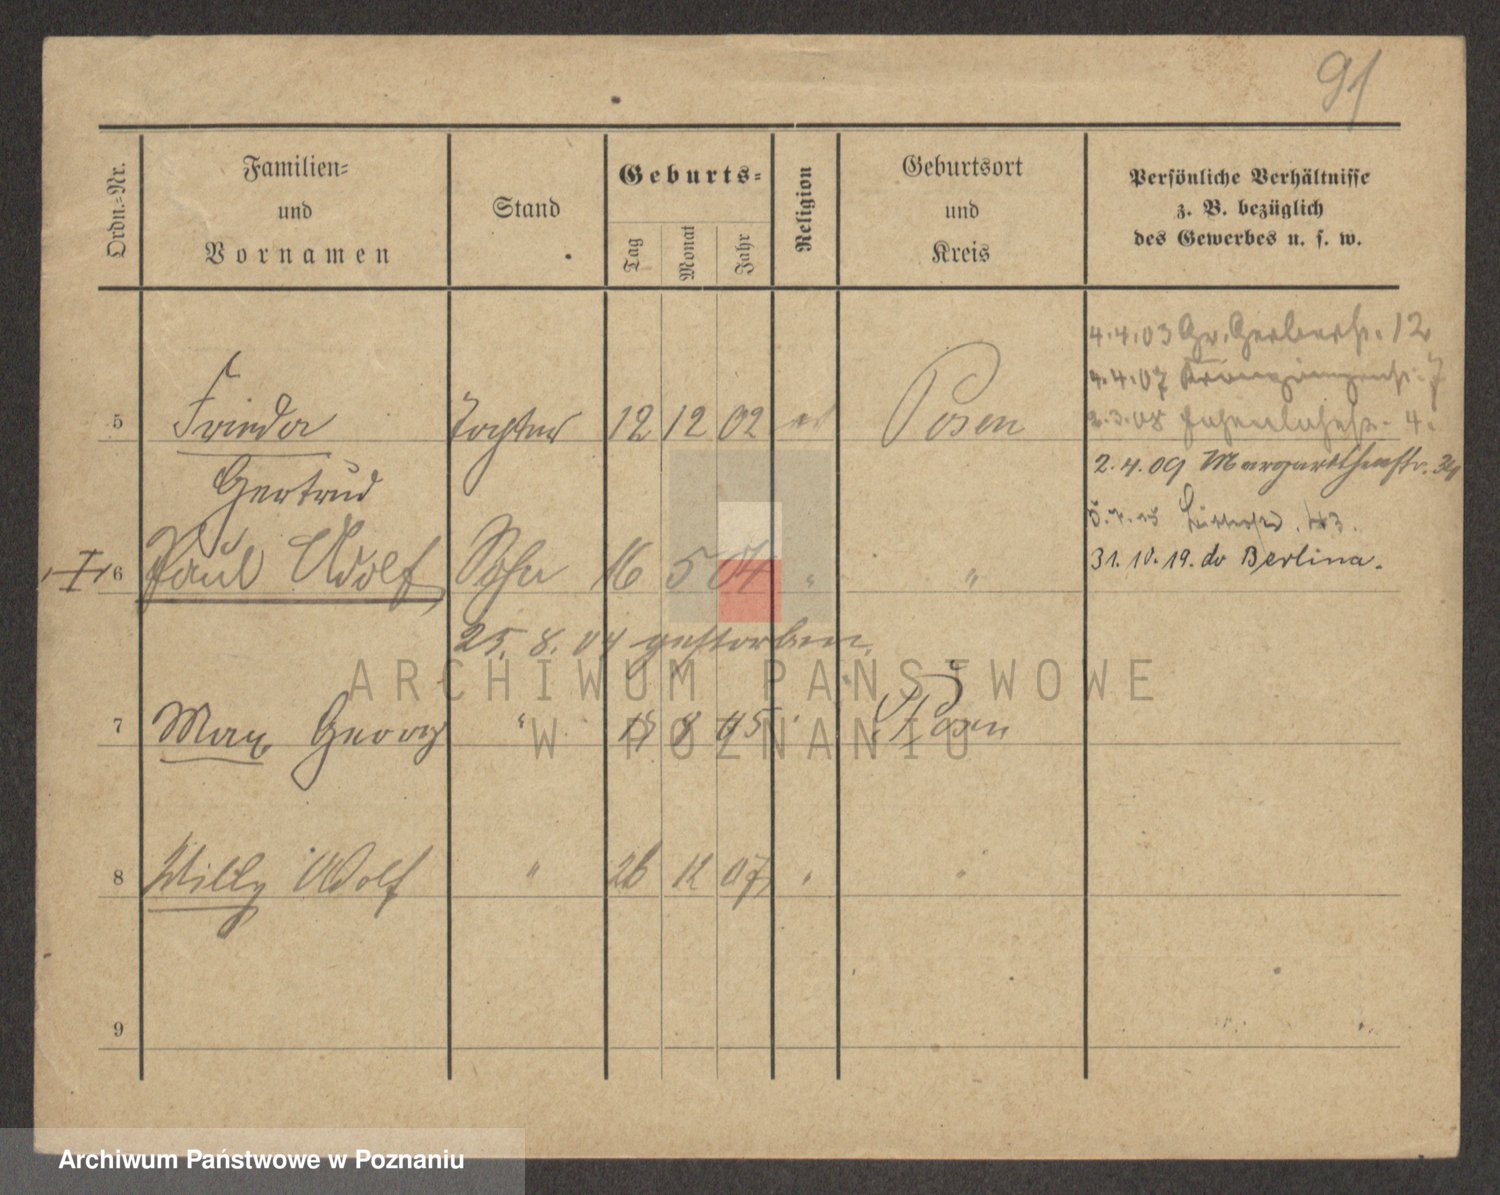 91
Ordn.-Nr.
Familien-
und
Vornamen
Stand
Geburts-
Tag
Monat
Jahr
Religion
Geburtsort
und
Kreis
Persönliche Verhältnisse
z. B. bezüglich
des Gewerbes u. s. w.
4.4.03 Gr. Gerberstr. 12
4.4.07 7
5 Frieda Tochter 12 12 02 Posen
2.3.08 4.
Gertrud
2.4.09 Margarethenstr.
I 6 Paul Adolf Sohn 16 5 04 "
31.10.19. do Berlina.
25. 8. 04 gestorben.
ARCHIWUM PAŃSTWOWE
W POZNANIU
7 Max Georg " 8 05 Posen
8 Willy Adolf " 26 12 07 "
9
Archiwum Państwowe w Poznaniu